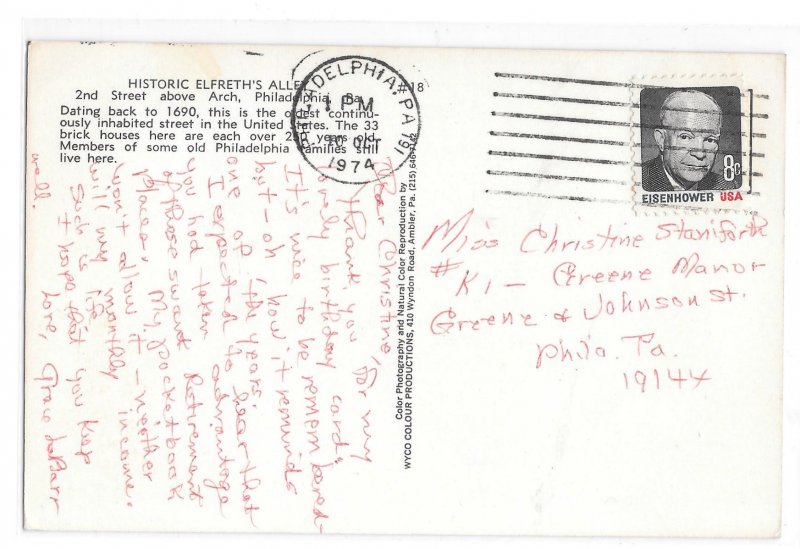 HISTORIC ELFRETH'S ALLEY
2nd Street above Arch, Philadelphia, Pa.
Dating back to 1690, this is the oldest continu-
ously inhabited street in the United States. The 33
brick houses here are each over 250 years old.
Members of some old Philadelphia families still
live here.
#18
PHILADELPHIA, PA 191
1 PM
OCT
1974
8c
EISENHOWER USA
Color Photography and Natural Color Reproduction by
WYCO COLOUR PRODUCTIONS, 410 Wyndon Road, Ambler, Pa. (215) 646-7142
Dear Christine,
Thank you for my
lovely birthday card.
It's nice to be remembered-
but - oh how it reminds
one of the years.
I expected to hear that
you had taken advantage
of those swank Retirement
Places. My pocketbook
won't allow it - neither
will my monthly income.
Such is life.
I hope that you keep
well.
Love, Grace LaBarr
Miss Christine Staniforth
#K1 - Greene Manor
Greene & Johnson St.
Phila. Pa.
19144